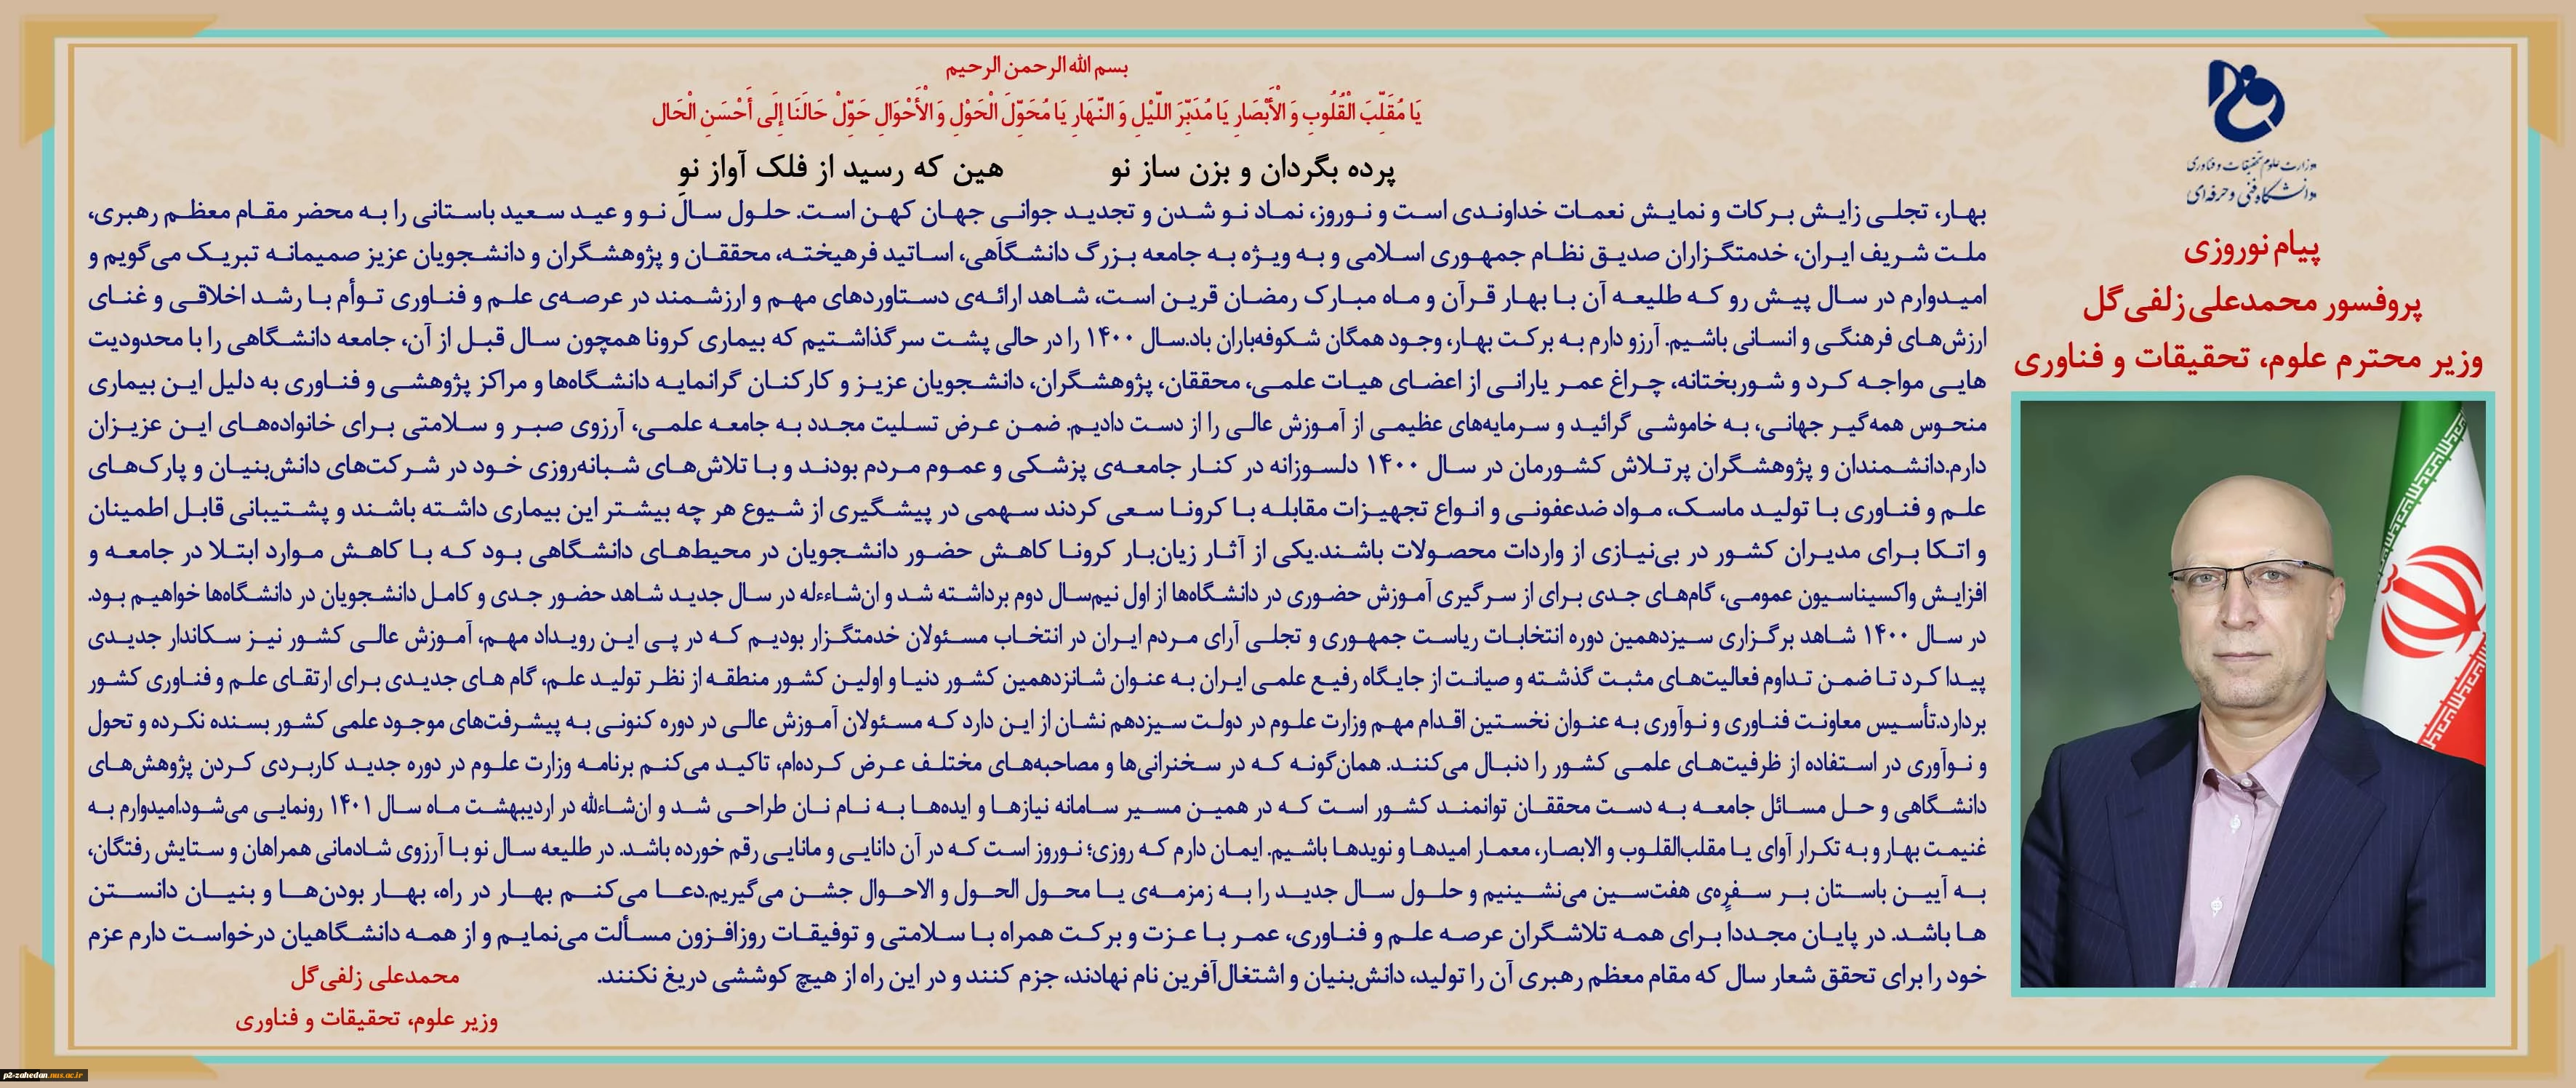 بسم الله الرحمن الرحیم
یَا مُقَلِّبَ الْقُلُوبِ وَ الْأَبْصَارِ یَا مُدَبِّرَ اللَّیْلِ وَ النَّهَارِ یَا مُحَوِّلَ الْحَوْلِ وَ الْأَحْوَالِ حَوِّلْ حَالَنَا إِلَی أَحْسَنِ الْحَالِ
پرده بگردان و بزن ساز نو هین که رسید از فلک آواز نو
وزارت علوم تحقیقات و فناوری
دانشگاه فنی و حرفه‌ای
پیام نوروزی
پروفسور محمدعلی زلفی‌گل
وزیر محترم علوم، تحقیقات و فناوری
بهار، تجلی زایش برکات و نمایش نعمات خداوندی است و نوروز، نماد نو شدن و تجدید جوانی جهان کهن است. حلول سال نو و عید سعید باستانی را به محضر مقام معظم رهبری،
ملت شریف ایران، خدمتگزاران صدیق نظام جمهوری اسلامی و به ویژه به جامعه بزرگ دانشگاهی، اساتید فرهیخته، محققان و پژوهشگران و دانشجویان عزیز صمیمانه تبریک می‌گویم و
امیدوارم در سال پیش رو که طلیعه آن با بهار قرآن و ماه مبارک رمضان قرین است، شاهد ارائه‌ی دستاوردهای مهم و ارزشمند در عرصه‌ی علم و فناوری توأم با رشد اخلاقی و غنای
ارزش‌های فرهنگی و انسانی باشیم. آرزو دارم به برکت بهار، وجود همگان شکوفه‌باران باد.سال ۱۴۰۰ را در حالی پشت سر گذاشتیم که بیماری کرونا همچون سال قبل از آن، جامعه دانشگاهی را با محدودیت
هایی مواجه کرد و شوربختانه، چراغ عمر یارانی از اعضای هیات علمی، محققان، پژوهشگران، دانشجویان عزیز و کارکنان گرانمایه دانشگاه‌ها و مراکز پژوهشی و فناوری به دلیل این بیماری
منحوس همه‌گیر جهانی، به خاموشی گرائید و سرمایه‌های عظیمی از آموزش عالی را از دست دادیم. ضمن عرض تسلیت مجدد به جامعه علمی، آرزوی صبر و سلامتی برای خانواده‌های این عزیزان
دارم.دانشمندان و پژوهشگران پرتلاش کشورمان در سال ۱۴۰۰ دلسوزانه در کنار جامعه‌ی پزشکی و عموم مردم بودند و با تلاش‌های شبانه‌روزی خود در شرکت‌های دانش‌بنیان و پارک‌های
علم و فناوری با تولید ماسک، مواد ضدعفونی و انواع تجهیزات مقابله با کرونا سعی کردند سهمی در پیشگیری از شیوع هر چه بیشتر این بیماری داشته باشند و پشتیبانی قابل اطمینان
و اتکا برای مدیران کشور در بی‌نیازی از واردات محصولات باشند.یکی از آثار زیان‌بار کرونا کاهش حضور دانشجویان در محیط‌های دانشگاهی بود که با کاهش موارد ابتلا در جامعه و
افزایش واکسیناسیون عمومی، گام‌های جدی برای از سرگیری آموزش حضوری در دانشگاه‌ها از اول نیم‌سال دوم برداشته شد و ان‌شاءءله در سال جدید شاهد حضور جدی و کامل دانشجویان در دانشگاه‌ها خواهیم بود.
در سال ۱۴۰۰ شاهد برگزاری سیزدهمین دوره انتخابات ریاست جمهوری و تجلی آرای مردم ایران در انتخاب مسئولان خدمتگزار بودیم که در پی این رویداد مهم، آموزش عالی کشور نیز سکاندار جدیدی
پیدا کرد تا ضمن تداوم فعالیت‌های مثبت گذشته و صیانت از جایگاه رفیع علمی ایران به عنوان شانزدهمین کشور دنیا و اولین کشور منطقه از نظر تولید علم، گام های جدیدی برای ارتقای علم و فناوری کشور
بردارد.تأسیس معاونت فناوری و نوآوری به عنوان نخستین اقدام مهم وزارت علوم در دولت سیزدهم نشان از این دارد که مسئولان آموزش عالی در دوره کنونی به پیشرفت‌های موجود علمی کشور بسنده نکرده و تحول
و نوآوری در استفاده از ظرفیت‌های علمی کشور را دنبال می‌کنند. همان‌گونه که در سخنرانی‌ها و مصاحبه‌های مختلف عرض کرده‌ام، تاکید می‌کنم برنامه وزارت علوم در دوره جدید کاربردی کردن پژوهش‌های
دانشگاهی و حل مسائل جامعه به دست محققان توانمند کشور است که در همین مسیر سامانه نیازها و ایده‌ها به نام نان طراحی شد و ان‌شاءلله در اردیبهشت ماه سال ۱۴۰۱ رونمایی می‌شود.امیدوارم به
غنیمت بهار و به تکرار آوای یا مقلب‌القلوب و الابصار، معمار امیدها و نویدها باشیم. ایمان دارم که روزی؛ نوروز است که در آن دانایی و مانایی رقم خورده باشد. در طلیعه سال نو با آرزوی شادمانی همراهان و ستایش رفتگان،
به آیین باستان بر سفره‌ی هفت‌سین می‌نشینیم و حلول سال جدید را به زمزمه‌ی یا محول الحول و الاحوال جشن می‌گیریم.دعا می‌کنم بهار در راه، بهار بودن‌ها و بنیان دانستن
ها باشد. در پایان مجددا برای همه تلاشگران عرصه علم و فناوری، عمر با عزت و برکت همراه با سلامتی و توفیقات روزافزون مسألت می‌نمایم و از همه دانشگاهیان درخواست دارم عزم
خود را برای تحقق شعار سال که مقام معظم رهبری آن را تولید، دانش‌بنیان و اشتغال‌آفرین نام نهادند، جزم کنند و در این راه از هیچ کوششی دریغ نکنند.
محمدعلی زلفی‌گل
وزیر علوم، تحقیقات و فناوری
p2-zahedan.nus.ac.ir